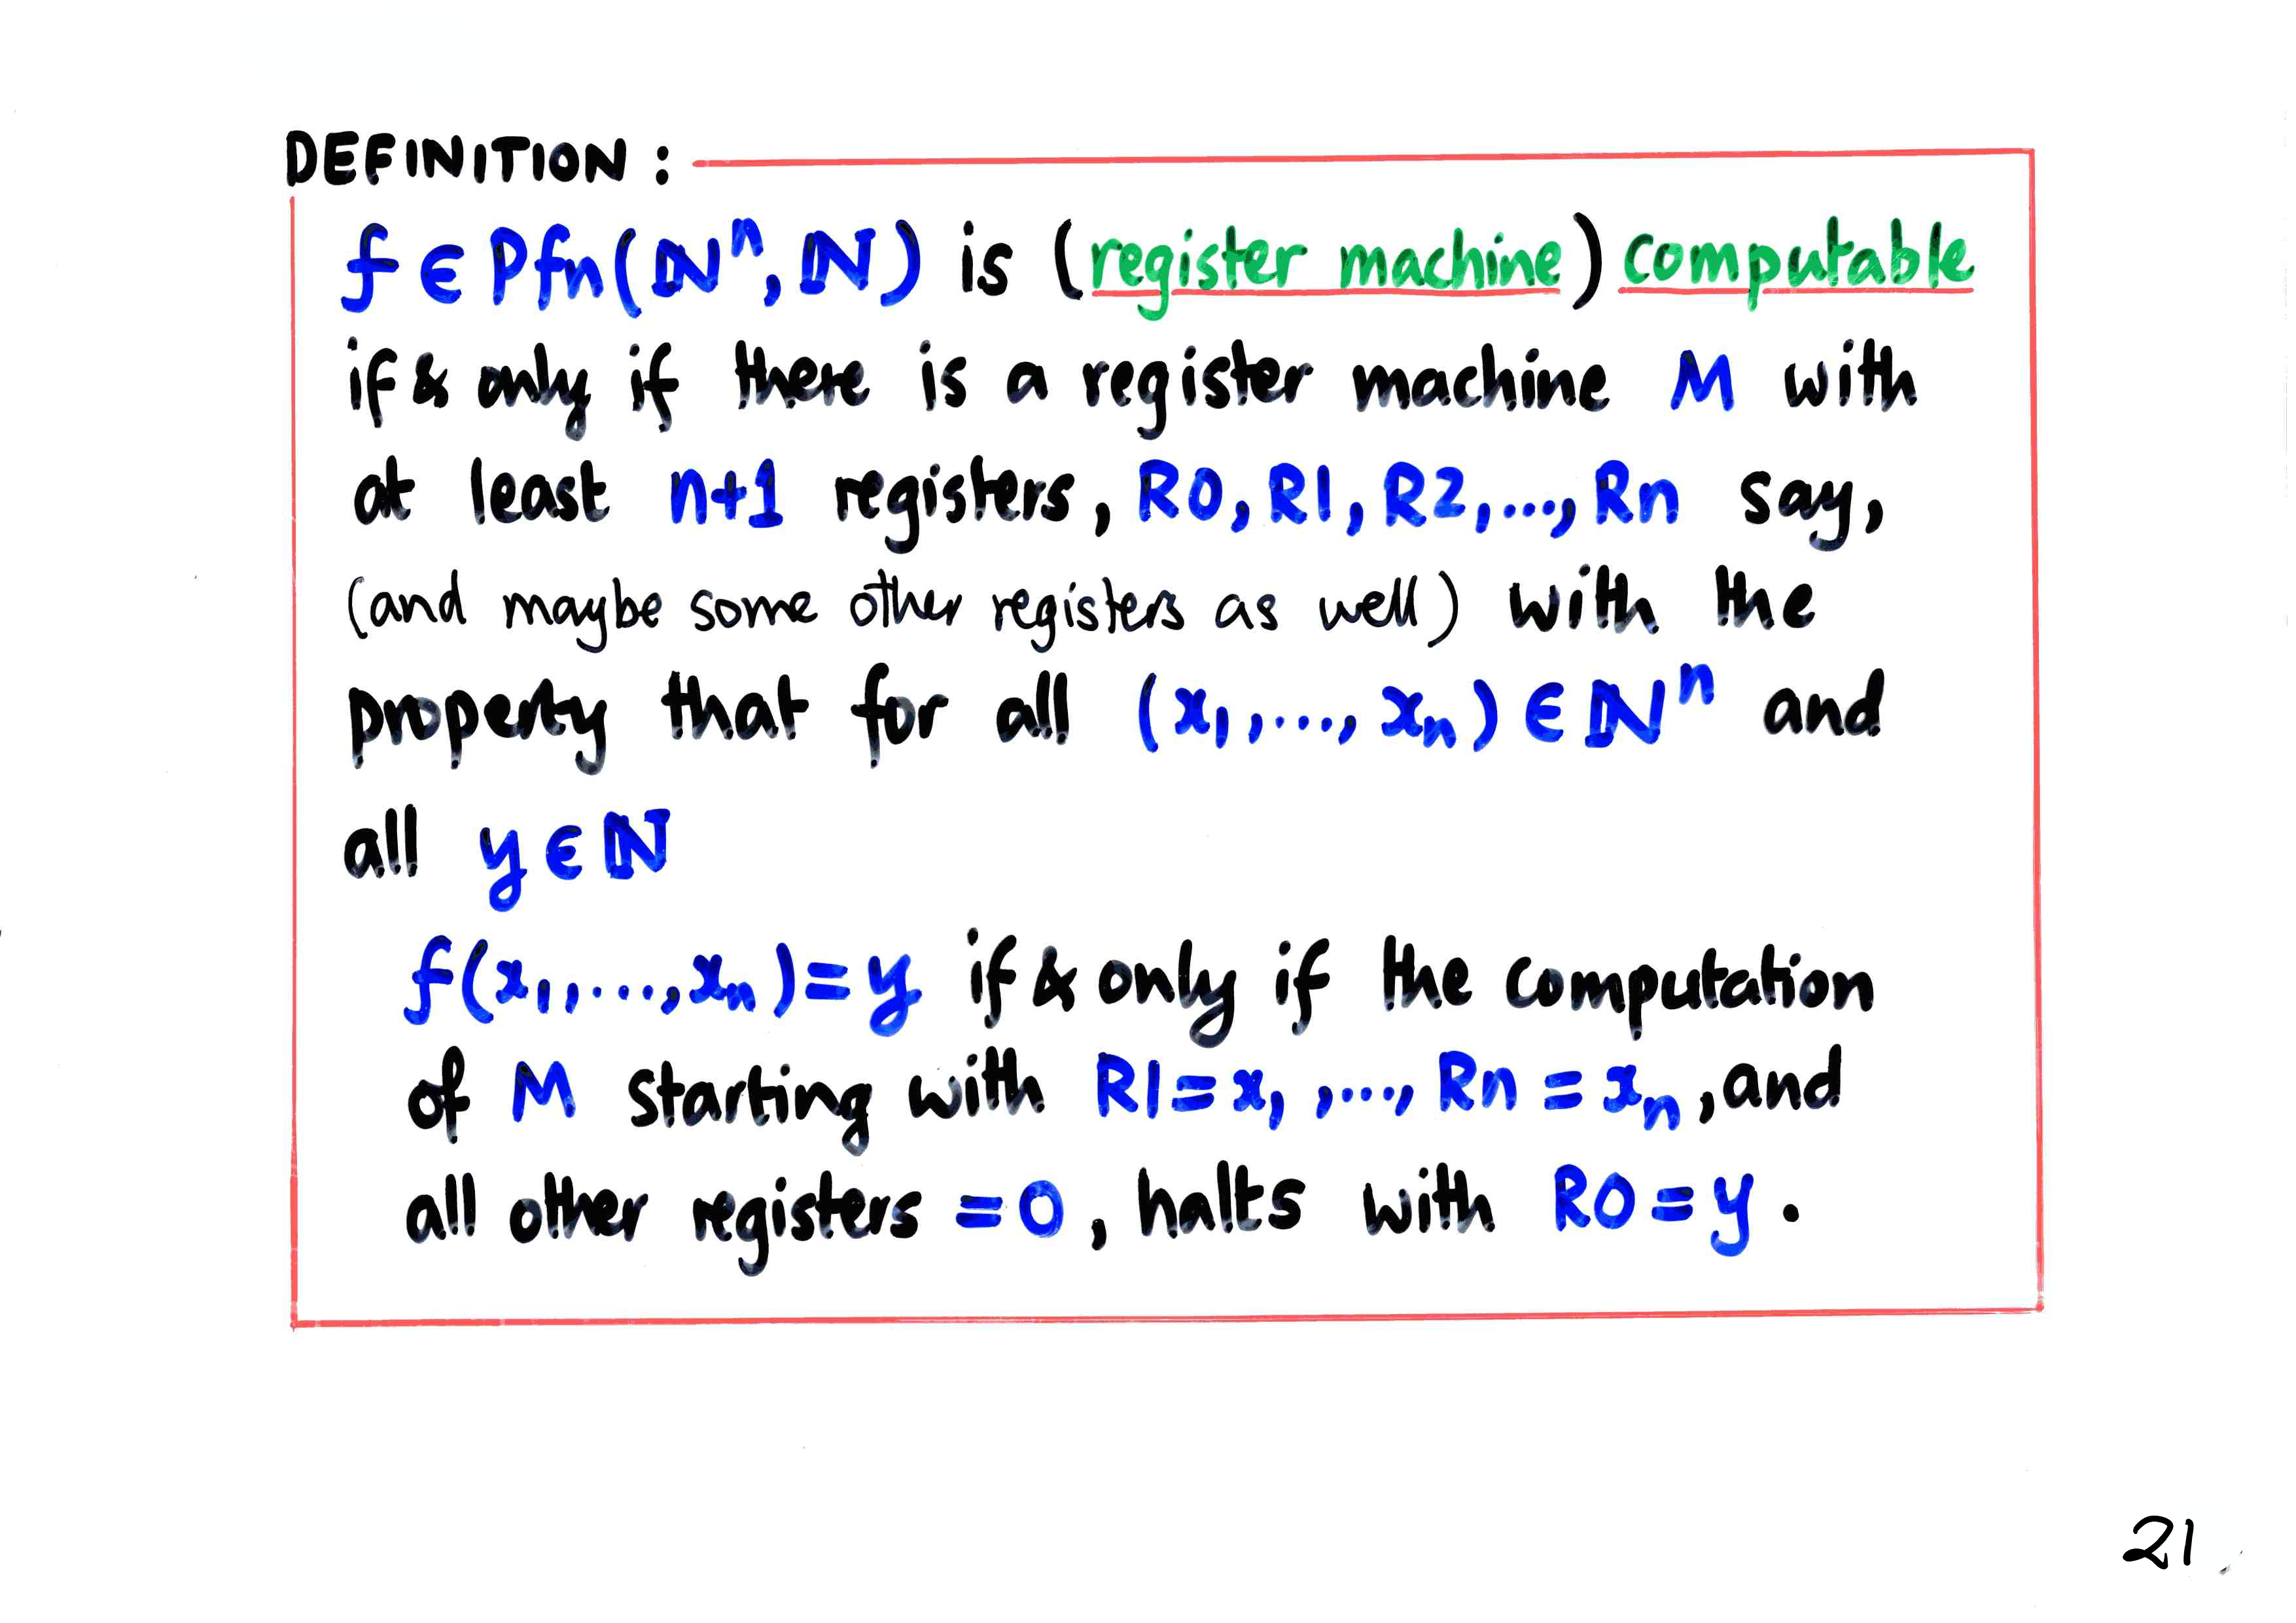 DEFINITION :
f ∈ Pfn(ℕⁿ, ℕ) is (register machine) computable
if & only if there is a register machine M with
at least n+1 registers, R0, R1, R2, ..., Rn say,
(and maybe some other registers as well) with the
property that for all (x₁, ..., xₙ) ∈ ℕⁿ and
all y ∈ ℕ
f(x₁, ..., xₙ) = y if & only if the computation
of M starting with R1 = x₁, ..., Rn = xₙ, and
all other registers = 0, halts with R0 = y.
21